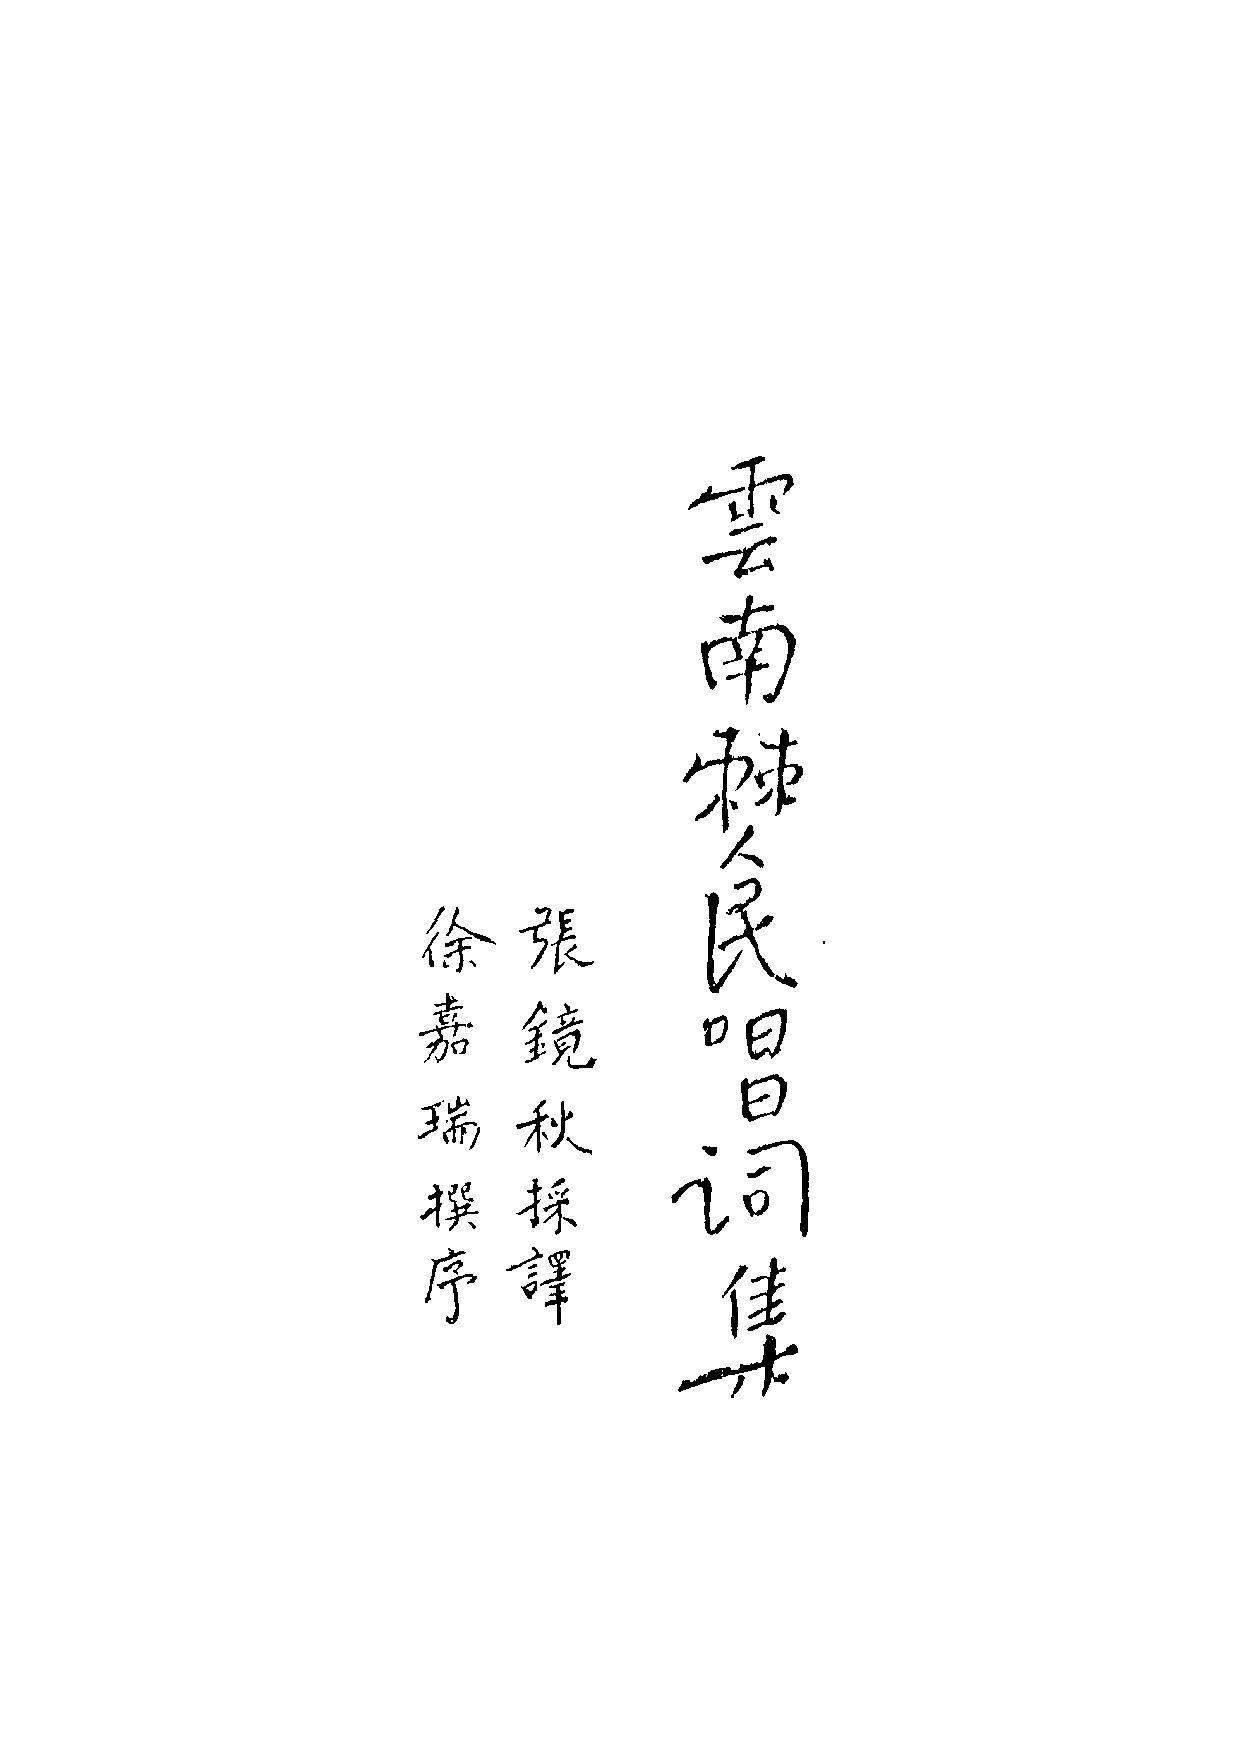 雲南僰民唱词集
張鏡秋採譯
徐嘉瑞撰序